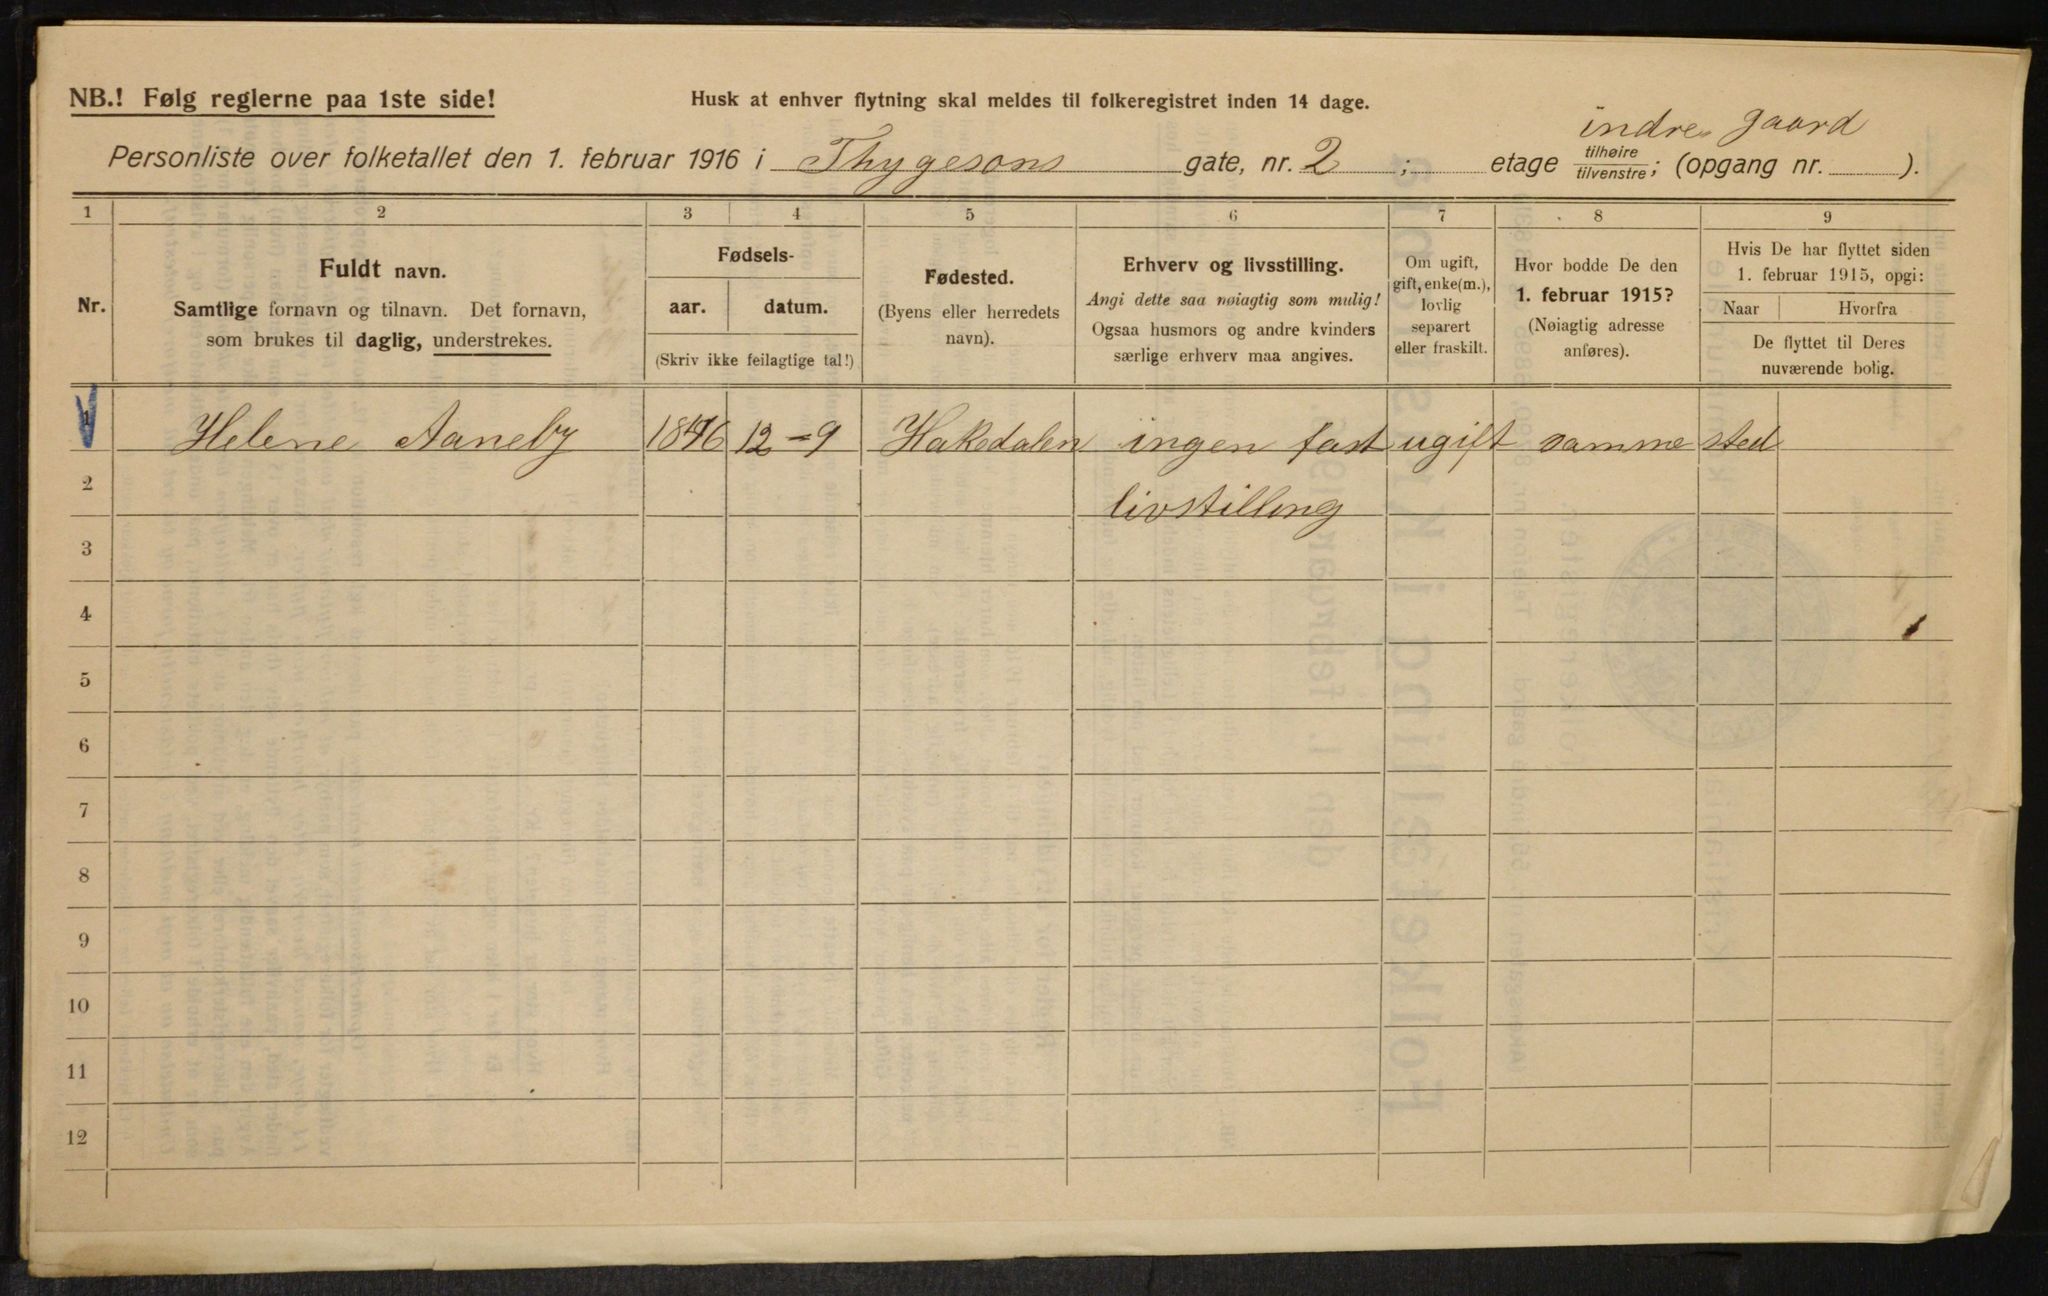 NB.! Følg reglerne paa 1ste side!
Husk at enhver flytning skal meldes til folkeregistret inden 14 dage.
indre gaard
Personliste over folketallet den 1. februar 1916 i Thygesons gate, nr. 2 ; etage tilhøire tilvenstre ; (opgang nr. ).
1 2 3 4 5 6 7 8 9
Nr.
Fuldt navn.
Samtlige fornavn og tilnavn. Det fornavn,
som brukes til daglig, understrekes.
Fødsels-
aar. datum.
(Skriv ikke feilagtige tal!)
Fødested.
(Byens eller herredets
navn).
Erhverv og livsstilling.
Angi dette saa nøiagtig som mulig!
Ogsaa husmors og andre kvinders
særlige erhverv maa angives.
Om ugift,
gift, enke(m.),
lovlig
separert
eller fraskilt.
Hvor bodde De den
1. februar 1915?
(Nøiagtig adresse
anføres).
Hvis De har flyttet siden
1. februar 1915, opgi:
Naar Hvorfra
De flyttet til Deres
nuværende bolig.
1 Helene Aaneby 1846 12-9 Hakedalen ingen fast ugift samme sted
2 livstilling
3
4
5
6
7
8
9
10
11
12